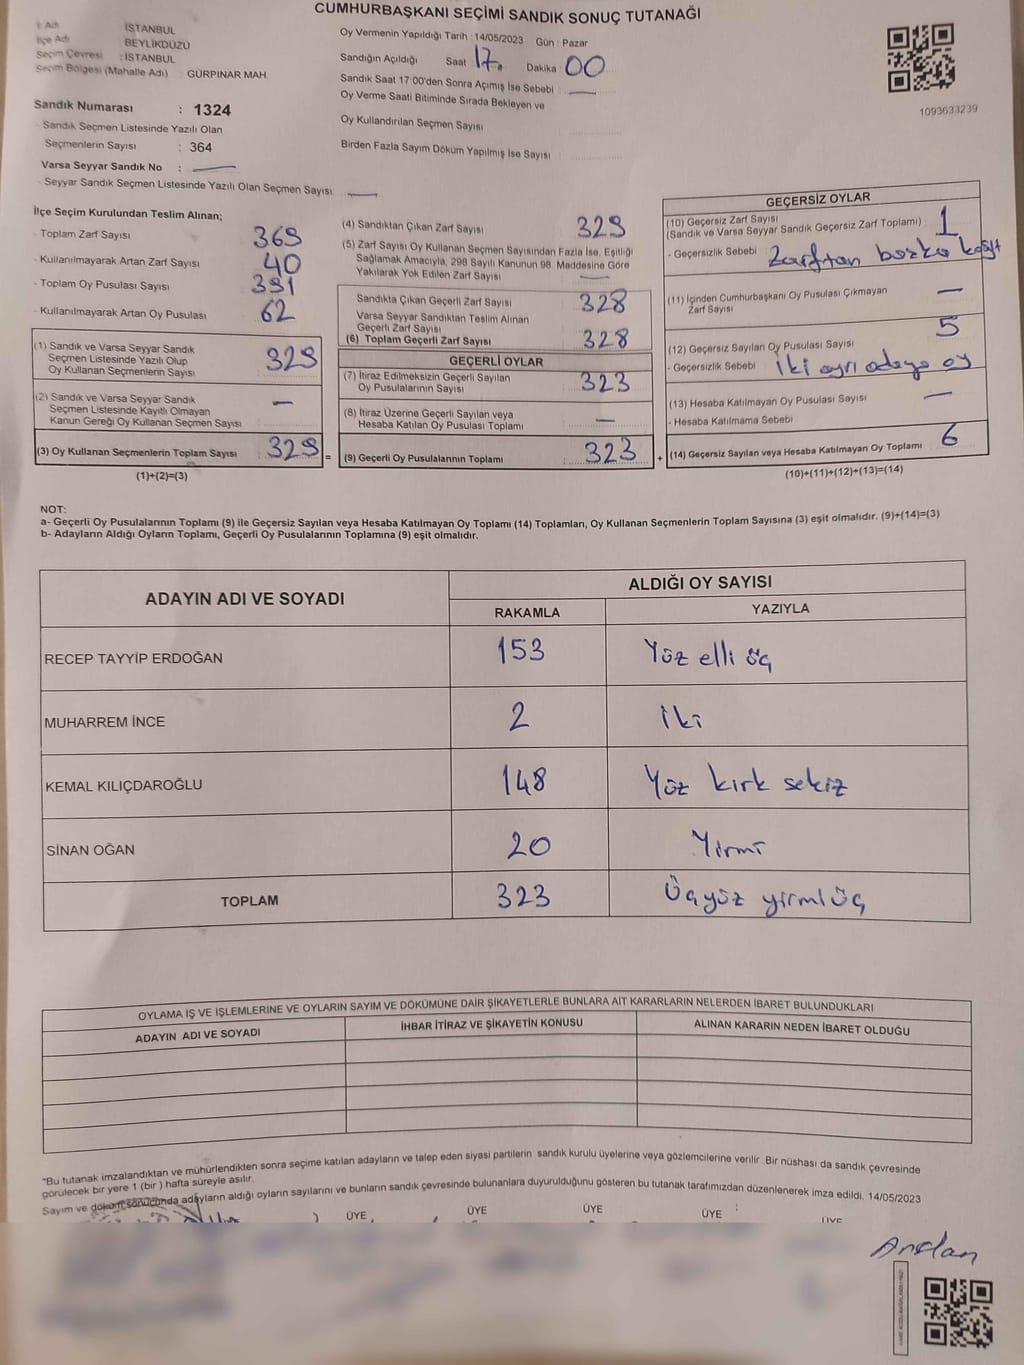 CUMHURBAŞKANI SEÇİMİ SANDIK SONUÇ TUTANAĞI
İl Adı : İSTANBUL
İlçe Adı : BEYLİKDÜZÜ
Seçim Çevresi : İSTANBUL
Seçim Bölgesi (Mahalle Adı) : GÜRPINAR MAH.
Sandık Numarası : 1324
- Sandık Seçmen Listesinde Yazılı Olan
Seçmenlerin Sayısı : 364
Varsa Seyyar Sandık No :
- Seyyar Sandık Seçmen Listesinde Yazılı Olan Seçmen Sayısı :
Oy Vermenin Yapıldığı Tarih : 14/05/2023 Gün : Pazar
Sandığın Açıldığı Saat 17. Dakika 00
Sandık Saat 17:00'den Sonra Açımış İse Sebebi
Oy Verme Saati Bitiminde Sırada Bekleyen ve
Oy Kullandırılan Seçmen Sayısı
Birden Fazla Sayım Döküm Yapılmış İse Sayısı
1093633239
İlçe Seçim Kurulundan Teslim Alınan;
- Toplam Zarf Sayısı 369
- Kullanılmayarak Artan Zarf Sayısı 40
- Toplam Oy Pusulası Sayısı 391
- Kullanılmayarak Artan Oy Pusulası 62
(1) Sandık ve Varsa Seyyar Sandık
Seçmen Listesinde Yazılı Olup
Oy Kullanan Seçmenlerin Sayısı 329
(2) Sandık ve Varsa Seyyar Sandık
Seçmen Listesinde Kayıtlı Olmayan
Kanun Gereği Oy Kullanan Seçmen Sayısı : –
(3) Oy Kullanan Seçmenlerin Toplam Sayısı : 329 =
(1)+(2)=(3)
(4) Sandıktan Çıkan Zarf Sayısı 329
(5) Zarf Sayısı Oy Kullanan Seçmen Sayısından Fazla İse, Eşitliği
Sağlamak Amacıyla, 298 Sayılı Kanunun 98. Maddesine Göre
Yakılarak Yok Edilen Zarf Sayısı –
Sandıkta Çıkan Geçerli Zarf Sayısı 328
Varsa Seyyar Sandıktan Teslim Alınan
Geçerli Zarf Sayısı
(6) Toplam Geçerli Zarf Sayısı 328
GEÇERLİ OYLAR
(7) İtiraz Edilmeksizin Geçerli Sayılan
Oy Pusulalarının Sayısı 323
(8) İtiraz Üzerine Geçerli Sayılan veya
Hesaba Katılan Oy Pusulası Toplamı –
(9) Geçerli Oy Pusulalarının Toplamı 323 +
GEÇERSİZ OYLAR
(10) Geçersiz Zarf Sayısı
(Sandık ve Varsa Seyyar Sandık Geçersiz Zarf Toplamı) : 1
- Geçersizlik Sebebi Zarftan başka kağıt
(11) İçinden Cumhurbaşkanı Oy Pusulası Çıkmayan
Zarf Sayısı –
(12) Geçersiz Sayılan Oy Pusulası Sayısı 5
- Geçersizlik Sebebi iki ayrı adaya oy
(13) Hesaba Katılmayan Oy Pusulası Sayısı –
- Hesaba Katılmama Sebebi
(14) Geçersiz Sayılan veya Hesaba Katılmayan Oy Toplamı 6
(10)+(11)+(12)+(13)=(14)
NOT:
a- Geçerli Oy Pusulalarının Toplamı (9) ile Geçersiz Sayılan veya Hesaba Katılmayan Oy Toplamı (14) Toplamları, Oy Kullanan Seçmenlerin Toplam Sayısına (3) eşit olmalıdır. (9)+(14)=(3)
b- Adayların Aldığı Oyların Toplamı, Geçerli Oy Pusulalarının Toplamına (9) eşit olmalıdır.
ADAYIN ADI VE SOYADI ALDIĞI OY SAYISI
RAKAMLA YAZIYLA
RECEP TAYYİP ERDOĞAN 153 Yüz elli üç
MUHARREM İNCE 2 iki
KEMAL KILIÇDAROĞLU 148 Yüz kırk sekiz
SİNAN OĞAN 20 Yirmi
TOPLAM 323 Üçyüz yirmi üç
OYLAMA İŞ VE İŞLEMLERİNE VE OYLARIN SAYIM VE DÖKÜMÜNE DAİR ŞİKAYETLERLE BUNLARA AİT KARARLARIN NELERDEN İBARET BULUNDUKLARI
ADAYIN ADI VE SOYADI İHBAR İTİRAZ VE ŞİKAYETİN KONUSU ALINAN KARARIN NEDEN İBARET OLDUĞU
*Bu tutanak imzalandıktan ve mühürlendikten sonra seçime katılan adayların ve talep eden siyasi partilerin sandık kurulu üyelerine veya gözlemcilerine verilir. Bir nüshası da sandık çevresinde
görülecek bir yere 1 (bir ) hafta süreyle asılır.
Sayım ve döküm sonucunda adayların aldığı oyların sayılarını ve bunların sandık çevresinde bulunanlara duyurulduğunu gösteren bu tutanak tarafımızdan düzenlenerek imza edildi. 14/05/2023
ÜYE ÜYE ÜYE ÜYE ÜYE
Arslan